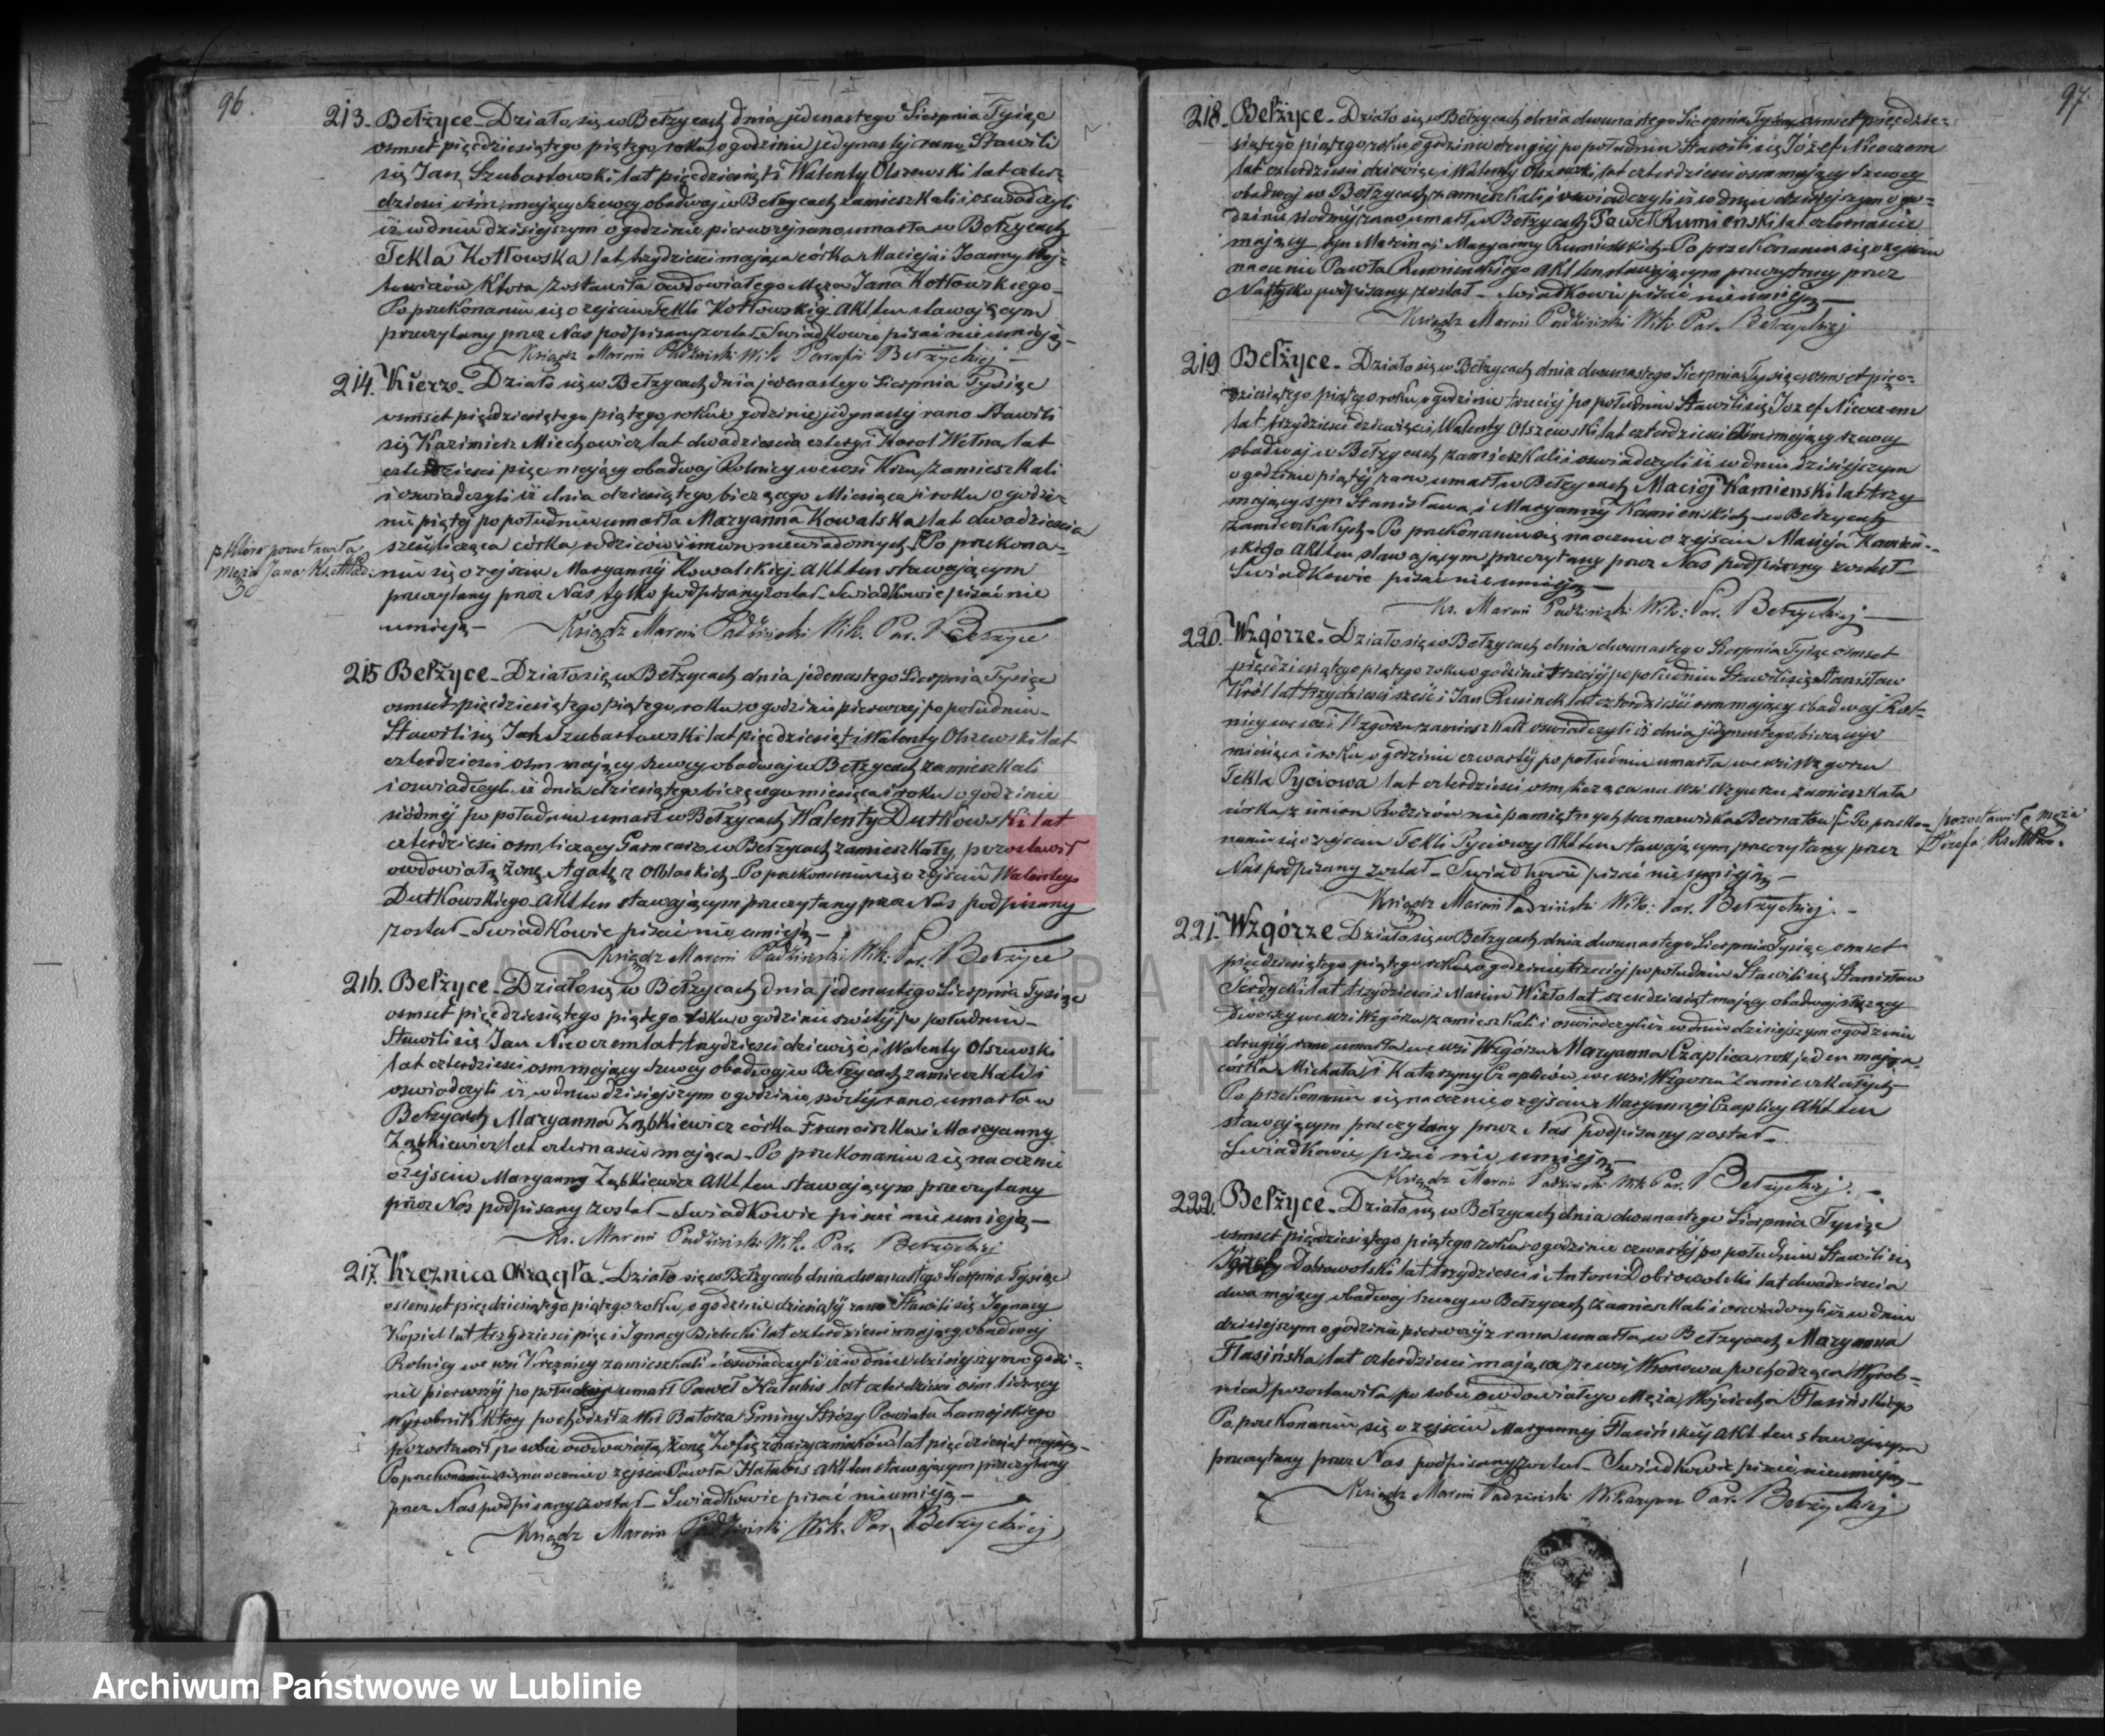 96.
213. Bełżyce. Działo się w Bełżycach dnia jedenastego Sierpnia Tysiąc
osmset pięćdziesiątego piątego roku o godzinie jedynastej rano Stawili
się Jan Szubartowski lat pięćdziesiąt i Walenty Olszewski lat czter-
dzieści ośm mający Szewcy obadwaj w Bełżycach zamieszkali i oświadczyli
iż w dniu dzisiejszym o godzinie pierwszej rano umarła w Bełżycach
Tekla Kotłowska lat trzydzieści mająca córka Macieja i Joanny Woj-
towiczów która zostawiła owdowiałego Męża Jana Kotłowskiego
Po przekonaniu się o zejściu Tekli Kotłowskiej Akt ten stawającym
przeczytany przez Nas podpisany został Świadkowie pisać nie umieją
Ksiądz Marcin Padziński Wik. Parafii Bełżyckiej
214. Kierz. Działo się w Bełżycach dnia jedenastego Sierpnia Tysiąc
osmset pięćdziesiątego piątego roku o godzinie jedynastej rano Stawili
się Kazimierz Miechowicz lat dwadzieścia cztery i Karol Wełna lat
czterdzieści pięć mający obadwaj Rolnicy we wsi Kierzu zamieszkali
i oświadczyli iż dnia dziesiątego bieżącego Miesiąca i roku o godzi-
nie piątej po południu umarła Maryanna Kowalska lat dwadzieścia
sześć licząca córka rodziców i imion niewiadomych Po przekona-
pozostawiła
męża Jana
niu się o zejściu Maryanny Kowalskiej Akt ten stawającym
przeczytany przez Nas tylko podpisany został Świadkowie pisać nie
umieją Ksiądz Marcin Padziński Wik. Par. Bełżyce
215 Bełżyce. Działo się w Bełżycach dnia jedenastego Sierpnia Tysiąc
osmset pięćdziesiątego piątego roku o godzinie pierwszej po południu
Stawili się Jan Szubartowski lat pięćdziesiąt i Walenty Olszewski lat
czterdzieści ośm mający szewcy obadwaj w Bełżycach zamieszkali
i oświadczyli iż dnia dziesiątego bieżącego miesiąca i roku o godzinie
siódmej po południu umarł w Bełżycach Walenty Dutkowski lat
czterdzieści ośm liczący Garncarz w Bełżycach zamieszkały, pozostawił
owdowiałą żonę Agatę z Po przekonaniu się o zejściu Walentego
Dutkowskiego Akt ten stawającym przeczytany przez Nas podpisany
został Świadkowie pisać nie umieją
Ksiądz Marcin Padziński Wik. Par. Bełżyce
216. Bełżyce. Działo się w Bełżycach dnia jedenastego Sierpnia Tysiąc
osmset pięćdziesiątego piątego roku o godzinie szóstej po południu
Stawili się Jan Nieoczem lat trzydzieści dziewięć i Walenty Olszewski
lat czterdzieści ośm mający Szewcy obadwaj w Bełżycach zamieszkali i
oświadczyli iż w dniu dzisiejszym o godzinie szóstej rano umarła w
Bełżycach Maryanna Ząbkiewicz córka Franciszka i Maryanny
Ząbkiewicz lat czternaście mająca Po przekonaniu się naocznie
o zejściu Maryanny Ząbkiewicz Akt ten stawającym przeczytany
przez Nas podpisany został Świadkowie pisać nie umieją
Ks. Marcin Padziński Wik. Par. Bełżyckiej
217. Krężnica Okrągła. Działo się w Bełżycach dnia dwunastego Sierpnia Tysiąc
osiemset pięćdziesiątego piątego roku o godzinie dziesiątej rano Stawili się Ignacy
Kopiel lat trzydzieści pięć i Ignacy Bielecki lat czterdzieści mający obadwaj
Rolnicy we wsi Krężnicy zamieszkali i oświadczyli iż w dniu dzisiejszym o godzi-
nie pierwszej po południu umarł Paweł Hałabis lat czterdzieści ośm liczący
Wyrobnik który pochodził z Wsi Batorza Gminy Powiatu Zamojskiego
pozostawił po sobie owdowiałą żonę Zofię lat pięćdziesiąt mającą
Po przekonaniu się naocznie o zejściu Pawła Hałabis Akt ten stawającym przeczytany
przez Nas podpisany został Świadkowie pisać nie umieją
Ksiądz Marcin Padziński Wik. Par. Bełżyckiej
97.
218. Bełżyce. Działo się w Bełżycach dnia dwunastego Sierpnia Tysiąc osmset pięćdzie-
siątego piątego roku o godzinie drugiej po południu Stawili się Józef Nieoczem
lat czterdzieści dziewięć i Walenty Olszewski lat czterdzieści ośm mający Szewcy
obadwaj w Bełżycach zamieszkali i oświadczyli iż w dniu dzisiejszym o go-
dzinie siódmej rano umarł w Bełżycach Paweł Rumieński lat czternaście
mający syn Marcina i Maryanny Rumieńskich Po przekonaniu się o zejściu
naocznie Pawła Rumieńskiego Akt ten stawającym przeczytany przez
Nas tylko podpisany został Świadkowie pisać nie umieją
Ksiądz Marcin Padziński Wik. Par. Bełżyckiej
219 Bełżyce. Działo się w Bełżycach dnia dwunastego Sierpnia Tysiąc osmset pięć-
dziesiątego piątego roku o godzinie trzeciej po południu Stawili się Józef Nieoczem
lat trzydzieści dziewięć i Walenty Olszewski lat czterdzieści ośm mający szewcy
obadwaj w Bełżycach zamieszkali i oświadczyli iż w dniu dzisiejszym
o godzinie piątej rano umarł w Bełżycach Maciej Kamienski lat trzy
mający syn Stanisława i Maryanny Kamienskich w Bełżycach
zamieszkałych Po przekonaniu się naocznie o zejściu Macieja Kamień-
skiego Akt ten stawającym przeczytany przez Nas podpisany został
Świadkowie pisać nie umieją
Ks. Marcin Padziński Wik: Par. Bełżyckiej
220. Wzgórze. Działo się w Bełżycach dnia dwunastego Sierpnia Tysiąc osmset
pięćdziesiątego piątego roku o godzinie trzeciej po południu Stawili się Stanisław
Król lat trzydzieści sześć i Jan Rusinek lat czterdzieści ośm mający obadwaj Rol-
nicy we wsi Wzgórzu zamieszkali oświadczyli iż dnia jedynastego bieżącego
miesiąca i roku o godzinie czwartej po południu umarła we wsi Wzgórzu
Tekla Pyciowa lat czterdzieści ośm licząca na wsi Wzgórzu zamieszkała
córka z imion Rodziców niepamiętnych lecz nazwiska Bernatów Po przeko-
pozostawił męża
Józefa
naniu się o zejściu Tekli Pyciowy Akt ten stawającym przeczytany przez
Nas podpisany został Świadkowie pisać nie umieją
Ksiądz Marcin Padziński Wik: Par. Bełżyckiej.
221. Wzgórze Działo się w Bełżycach dnia dwunastego Sierpnia Tysiąc osmset
pięćdziesiątego piątego roku o godzinie trzeciej po południu Stawili się Stanisław
Serdycki lat trzydzieści i Marcin Wizło lat sześćdziesiąt mający obadwaj służący
dworscy we wsi Wzgórzu zamieszkali i oświadczyli iż w dniu dzisiejszym o godzinie
drugiej rano umarła we wsi Wzgórzu Maryanna Czaplica rok jeden mająca
córka Michała i Katarzyny Czaplów we wsi Wzgórzu zamieszkałych
Po przekonaniu się naocznie o zejściu Maryanny Czaplicy Akt ten
stawającym przeczytany przez Nas podpisany został
Świadkowie pisać nie umieją
Ksiądz Marcin Padziński Wik. Par. Bełżyckiej.
222. Bełżyce. Działo się w Bełżycach dnia dwunastego Sierpnia Tysiąc
osmset pięćdziesiątego piątego roku o godzinie czwartej po południu Stawili się
Dobrowolski lat trzydzieści i Antoni Dobrowolski lat dwadzieścia
dwa mający obadwaj Szewcy w Bełżycach zamieszkali i oświadczyli iż w dniu
dzisiejszym o godzinie pierwszej z rana umarła w Bełżycach Maryanna
Flasińska lat czterdzieści mająca ze wsi pochodząca Wyrob-
nica pozostawiła po sobie owdowiałego Męża Wojciecha Flasińskiego
Po przekonaniu się o zejściu Maryanny Flasińskiej Akt ten stawającym
przeczytany przez Nas podpisany został Świadkowie pisać nie umieją
Ksiądz Marcin Padziński Wikaryusz Par. Bełżyckiej
ARCHIWUM PAŃSTWOWE
W LUBLINIE
Archiwum Państwowe w Lublinie